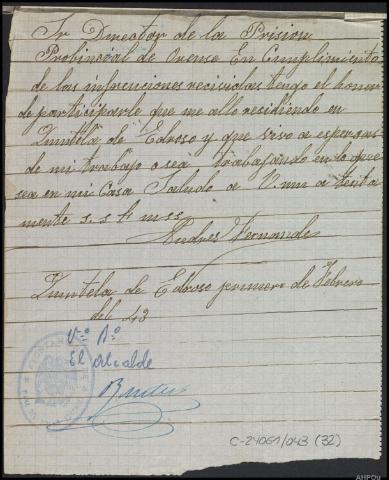 Sr Director de la Prision
Probincial de Orense En Cumplimiento
de las instruciones recicidas tengo el honor
de participarle que me allo residiendo en
Quintela de Edroso y que sivo a espensas
de mi trabajo o sea trabajando en lo que
sea en mi Casa Saludo a V. mm a tenta
mente s. s.
Andres Fernande
Quintela de Edroso primero de Febrero
del 43
Vº Bº
El Alcalde
C-24061/043 (32)
AHPOu